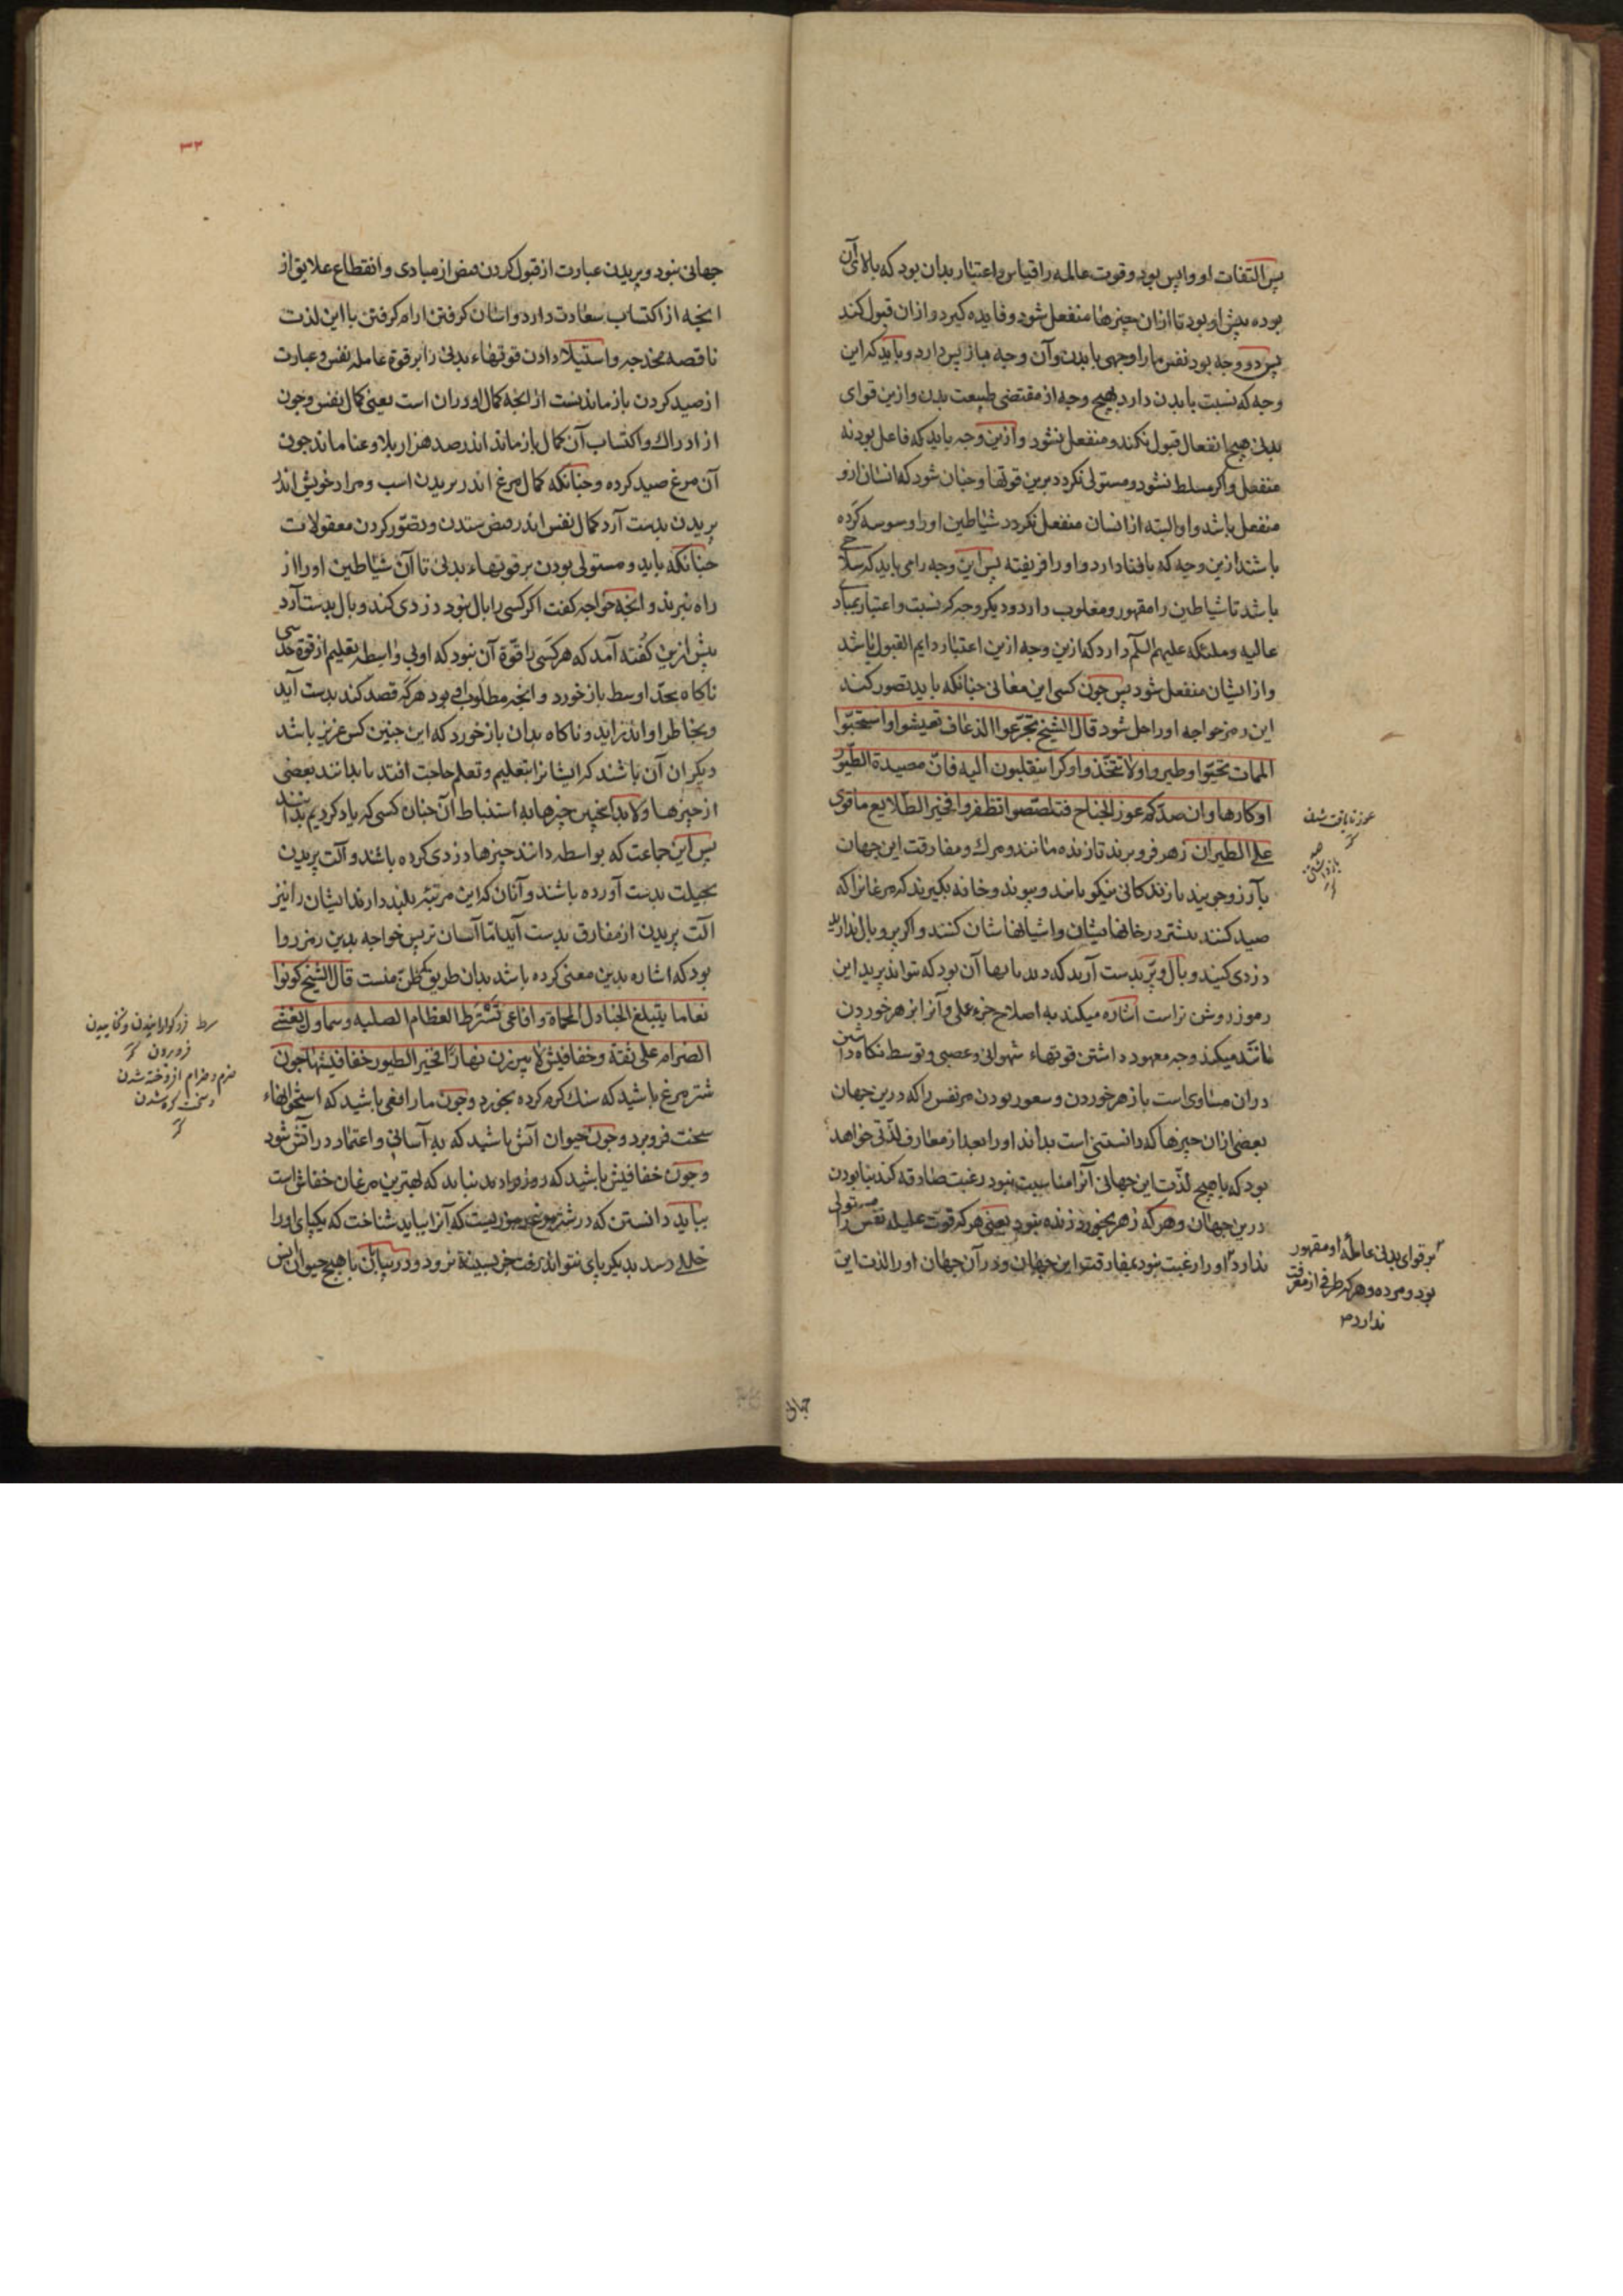 پس التفات او واپس بود و قوت عالمه را قیاس و اعتبار بدان بود که بالای آن
بوده پیش او بود تا ازان چیزها منفعل شود و فایده کیرد و ازان قبول کند
پس دو وجه بود نفس ما را وجهی با بدن و آن وجه باز پس دارد و باید که این
وجه که نسبت با بدن دارد بهیچ وجه از مقتضی طبیعت بدن و ازین قوای
بدنی هیچ انفعال قبول نکند و منفعل نشود و ازین وجه باید که فاعل بود نه
منفعل و اکر مسلط نشود و مستولی نکردد برین قوتها و چنان شود که انسان ازو
منفعل باشد و او البته از انسان منفعل نکردد شیاطین او را وسوسه کرده
باشند ازین وجه که با فنا دارد و او را فریفته پس این وجه را می باید که
باشد تا شیاطین را مقهور و مغلوب دارد و دیکر وجه که نسبت و اعتبار بمبادی
عالیه و ملئکه علیهم السلم دارد که ازین وجه ازین اعتبار دایم القبول باشد
و از ایشان منفعل شود پس چون کسی این معانی چنانکه باید تصور کند
این رمز خواجه او را حل شود قال الشیخ تجرعوا الذعاف تعیشوا و استحبوا
الممات تحیوا و طیروا و لا تتخذوا وکرا ینقلبون الیه فان مصیدة الطیور
اوکارها و ان صدکم عوز الجناح فتلصصوا تظفروا فخیر الطلایع ما قوی
علی الطیران زهر فرو برند تا زنده مانند و مرک و مفارقت این جهان
بآرزو جویند تا زندکانی نیکو یابند و بپرند و خانه نکیرند که مرغانرا که
صید کنند بیشتر در خانها ایشان و اشیانهاشان کنند و اکر پر و بال ندارید
دزدی کنید و بال و پر بدست آرید که دیدبانها آن بود که تواند پرید این
رموز روشن تر است اشاره میکند به اصلاح جزء عملی و آنرا بزهر خوردن
مانند میکند وجه معهود داشتن قوتهاء شهوانی و غضبی و توسط نکاه داشتن
دران مساوی است با زهر خوردن و سعور بودن مر نفس را که درین جهان
بعضی ازان چیزها که دانستنی است بداند او را بعد از معارف لذتی خواهد
بود که با هیچ لذت این جهانی آنرا مناسبت نبود رغبت صادقه کند بنابودن
درین جهان و هر که زهر بخورد زنده نبود یعنی هر که قوت عملیه نفس را مستولی
ندارد او را رغبت نبود بمفارقت این جهان و در آن جهان او را لذت این
عوز نایافت شدن
صد
بازداشتن
بر قوای بدنی عامله او مقهور
بود و مرده و هر که طرفی از معرفت
ندارد
جهانی
۳۲
جهانی نبود و پریدن عبارت از قبول کردن فیض از مبادی و انقطاع علایق از
انچه از اکتساب سعادت دارد و اشیان کرفتن ارام کرفتن با این لذت
ناقصه مخدجه و استیلا دادن قوتهاء بدنی را بر قوة عامله نفس و عبارت
از صید کردن باز ماندنست از انچه کمال او دران است یعنی کمال نفس و چون
از ادراک و اکتساب آن کمال باز ماند اندر صد هزار بلا و عنا ماند چون
آن مرغ صید کرده و چنانکه کمال مرغ اندر پریدن است و مراد خویش اندر
پریدن بدست آرد کمال نفس اندر فیض ستدن و تصور کردن معقولات
چنانکه باید و مستولی بودن بر قوتهاء بدنی تا آن شیاطین او را از
راه نبرند و انچه خواجه کفت اکر کسی را بال نبود دزدی کند و بال بدست آرد
پیش ازین کفته آمد که هر کسی را قوة آن نبود که او بی واسطه تعلیم از قوة حدسی
ناکاه بحد اوسط باز خورد و انچه مطلوب او بود هر که قصد کند بدست آید
و بخاطر او اندر اید و ناکاه بدان باز خورد که این چنین کس عزیز باشد
دیکران آن باشند که ایشانرا بتعلیم و تعلم حاجت افتد تا بدانند بعضی
از چیزها و لابد انچنین چیزها به استنباط آن چنان کسی که یاد کردیم بدانند
پس این جماعت که بواسطه دانند چیزها دزدی کرده باشند و آلت پریدن
بحیلت بدست آورده باشند و آنان که این مرتبه بلند دارند ایشان را نیز
آلت پریدن از مفارق بدست آید اما آسان تر پس خواجه بدین رمز روا
بود که اشاره بدین معنی کرده باشد بدان طریق که ظن منست قال الشیخ کونوا
نعاما یتبلغ الجنادل المحماة و افاعی تسترط العظام الصلبه و سمادل یغشی
الضرام علی ثقة و خفافیش لا یبرزن نهارا فخیر الطیور خفافیشها چون
شتر مرغ باشید که سنک کرم کرده بخورد و چون مار افعی باشید که استخوانهاء
سخت فرو برد و چون حیوان آتش باشید که به آسانی و اعتماد در آتش شود
و چون خفافیش باشید که روز برون نیاید که بهترین مرغان خفاش است
بباید دانستن که در شتر مرغ رموزیست که آنرا بباید شناخت که یکپای او را
خللی رسد بدیکر پای نتواند رفت جز بسینه نرود و در بیابان با هیچ حیوان انس
سرط زود کوارانیدن و نخاییدن
فرو بردن
ضرم و ضرام افروخته شدن
و سخت کرم شدن